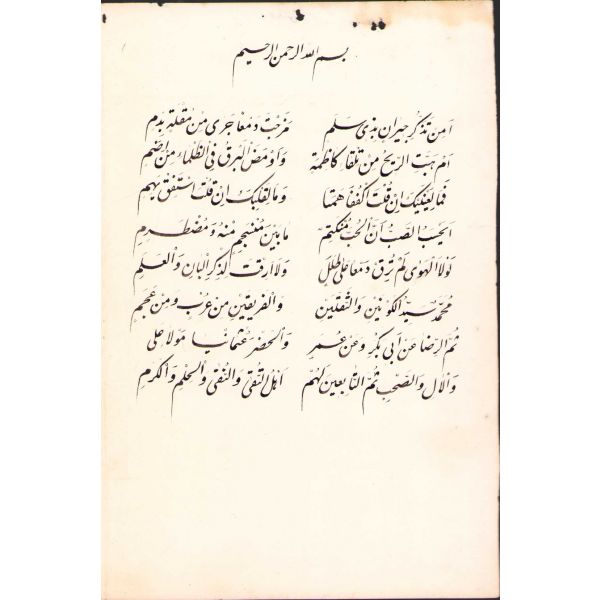 بسم الله الرحمن الرحيم
اَمِنْ تَذَكُّرِ جِيرَانٍ بِذِى سَلَمٍ مَزَجْتَ دَمْعًا جَرَى مِنْ مُقْلَةٍ بِدَمِ
اَمْ هَبَّتِ الرِّيحُ مِنْ تِلْقَاءِ كَاظِمَةٍ وَاَوْمَضَ الْبَرْقُ فِى الظَّلْمَاءِ مِنْ اِضَمِ
فَمَا لِعَيْنَيْكَ اِنْ قُلْتَ اكْفُفَا هَمَتَا وَمَا لِقَلْبِكَ اِنْ قُلْتَ اسْتَفِقْ يَهِمِ
اَيَحْسَبُ الصَّبُّ اَنَّ الْحُبَّ مُنْكَتِمٌ مَا بَيْنَ مُنْسَجِمٍ مِنْهُ وَمُضْطَرِمِ
لَوْلَا الْهَوَى لَمْ تُرِقْ دَمْعًا عَلَى طَلَلٍ وَلَا اَرِقْتَ لِذِكْرِ الْبَانِ وَالْعَلَمِ
مُحَمَّدٌ سَيِّدُ الْكَوْنَيْنِ وَالثَّقَلَيْنِ وَالْفَرِيقَيْنِ مِنْ عُرْبٍ وَمِنْ عَجَمِ
ثُمَّ الرِّضَا عَنْ اَبِى بَكْرٍ وَعَنْ عُمَرٍ وَالْحَضْرِ عُثْمَانِنَا مَوْلَا عَلِى
وَالْاٰلِ وَالصَّحْبِ ثُمَّ التَّابِعِينَ لَهُمْ اَهْلِ التُّقَى وَالنَّقَى وَالْحِلْمِ وَالْكَرَمِ